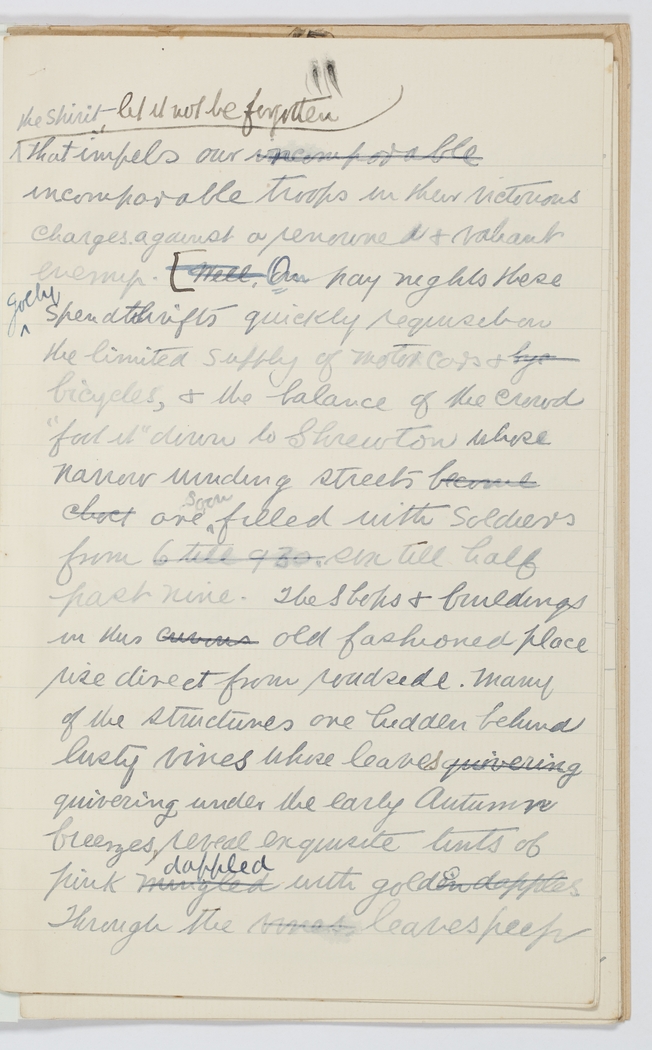 the spirit - let it not be forgotten
that impels our incomparable
incomparable troops in their victorious
charges against a renowned & valiant
enemy. [Well, On pay nights these
golly
spendthrifts quickly requisition
the limited supply of motor cars & byc
bicycles, & the balance of the crowd
"foot it" down to Shrewton whose
narrow winding streets become
soon
choct are filled with soldiers
from 6 till 930. six till half
past nine. The Shops & buildings
in this curious old fashioned place
rise direct from roadside. Many
of the structures are hidden behind
lusty vines whose leaves quivering
quivering under the early Autumn
breezes, reveal exquisite tints of
dappled
pink mingled with golden dapples
Through the vines leaves peep